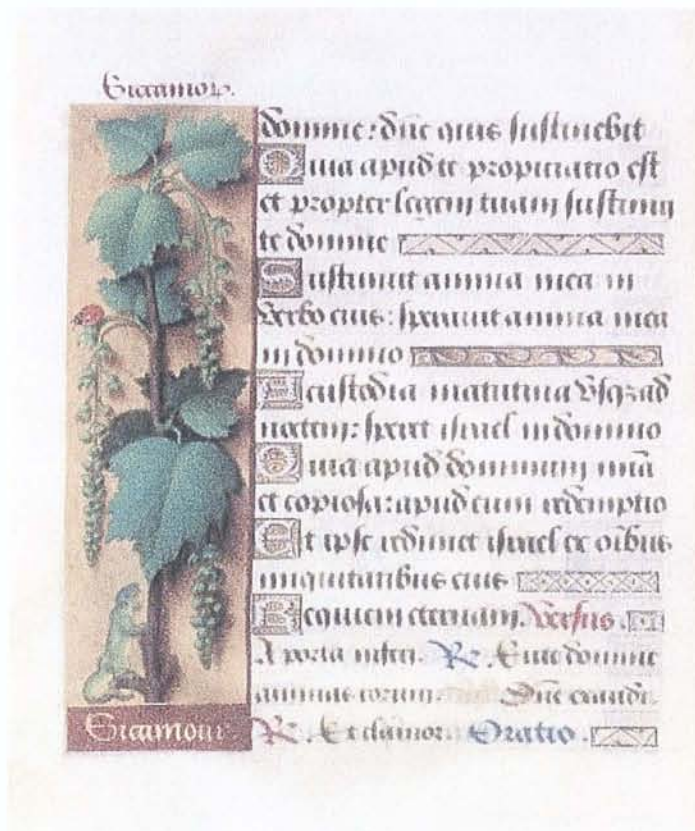 Siccamor.
domine: dñe quis sustinebit
Quia apud te propiciatio est
et propter legem tuam sustinui
te domine
Sustinuit anima mea in
verbo eius: speravit anima mea
in domino
A custodia matutina vsqz ad
noctem: speret israel in domino
Quia apud dominum mīa
et copiosa: apud eum redemptio
Et ipse redimet israel ex oībus
iniquitatibus eius
Requiem eternam. Versus.
A porta inferi. R. Erue domine
animas eorum. Dñe exaudi.
R. Et clamor. Oratio.
Sicamour